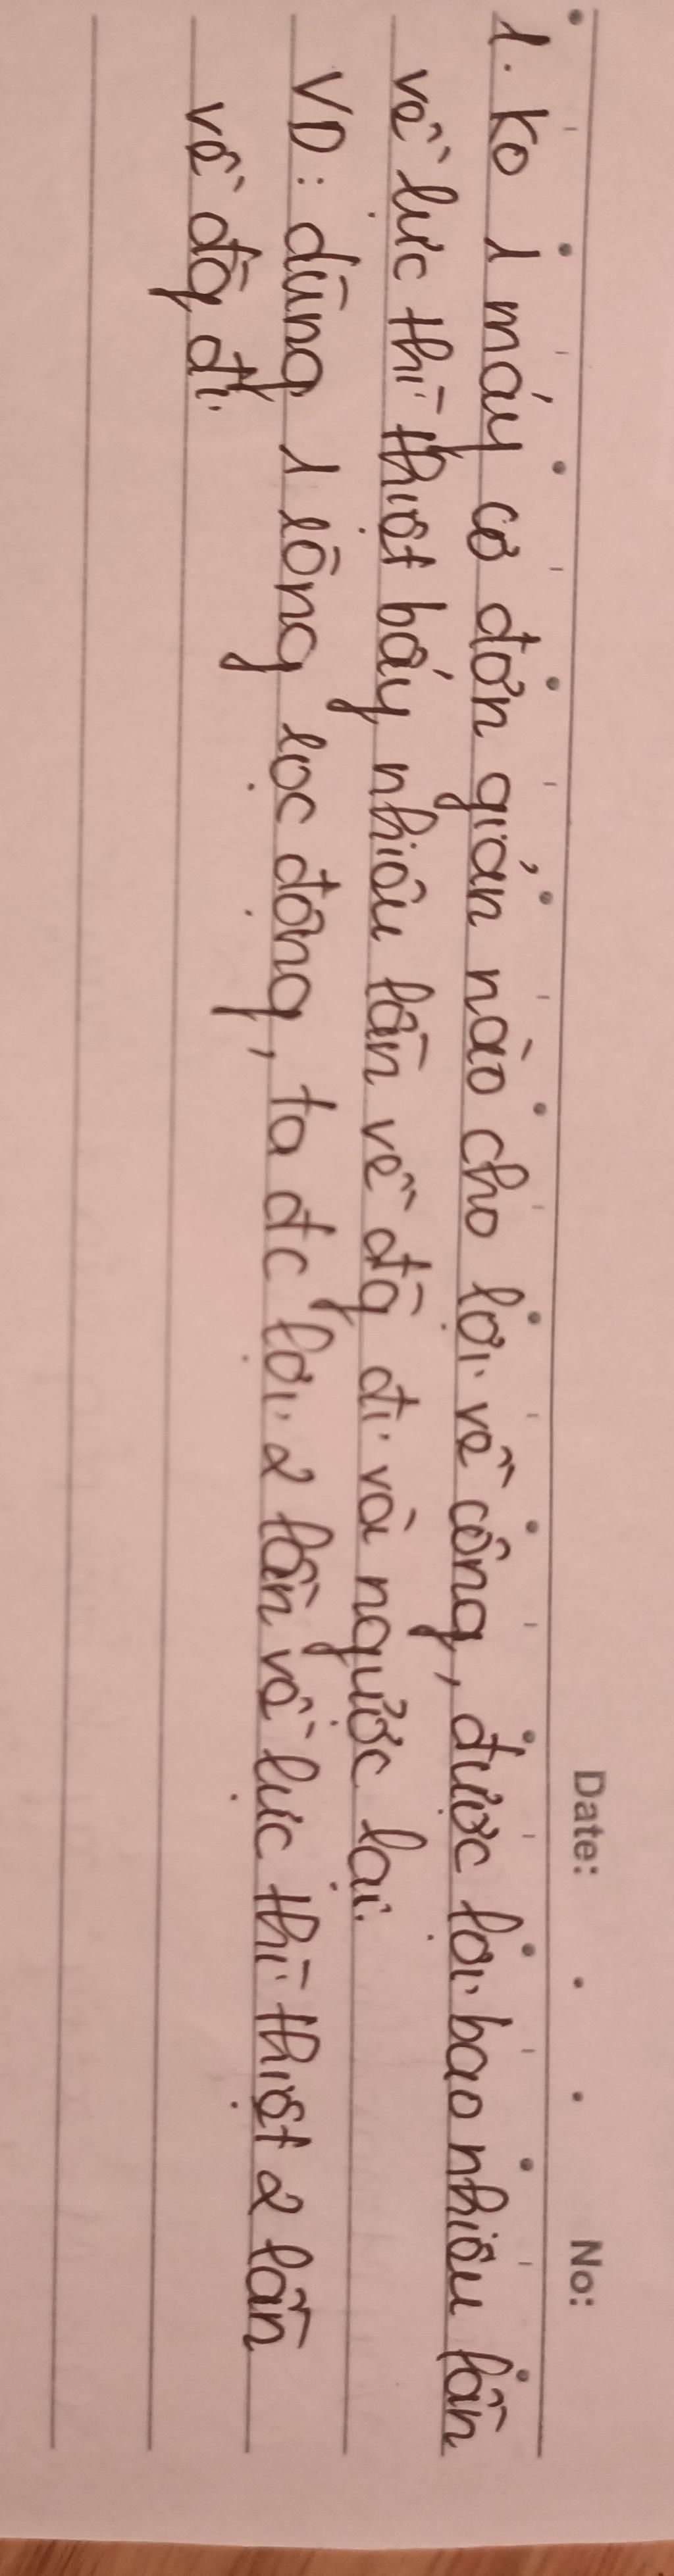 Date: . . No:
1. Ko 1 máy cơ đơn giản nào cho lợi về công, được lợi bao nhiêu lần
về lực thì thiệt bấy nhiêu lần về đg đi và ngược lại.
VD: dùng 1 ròng rọc động, ta đc lợi 2 lần về lực thì thiệt 2 lần
về đg đi.